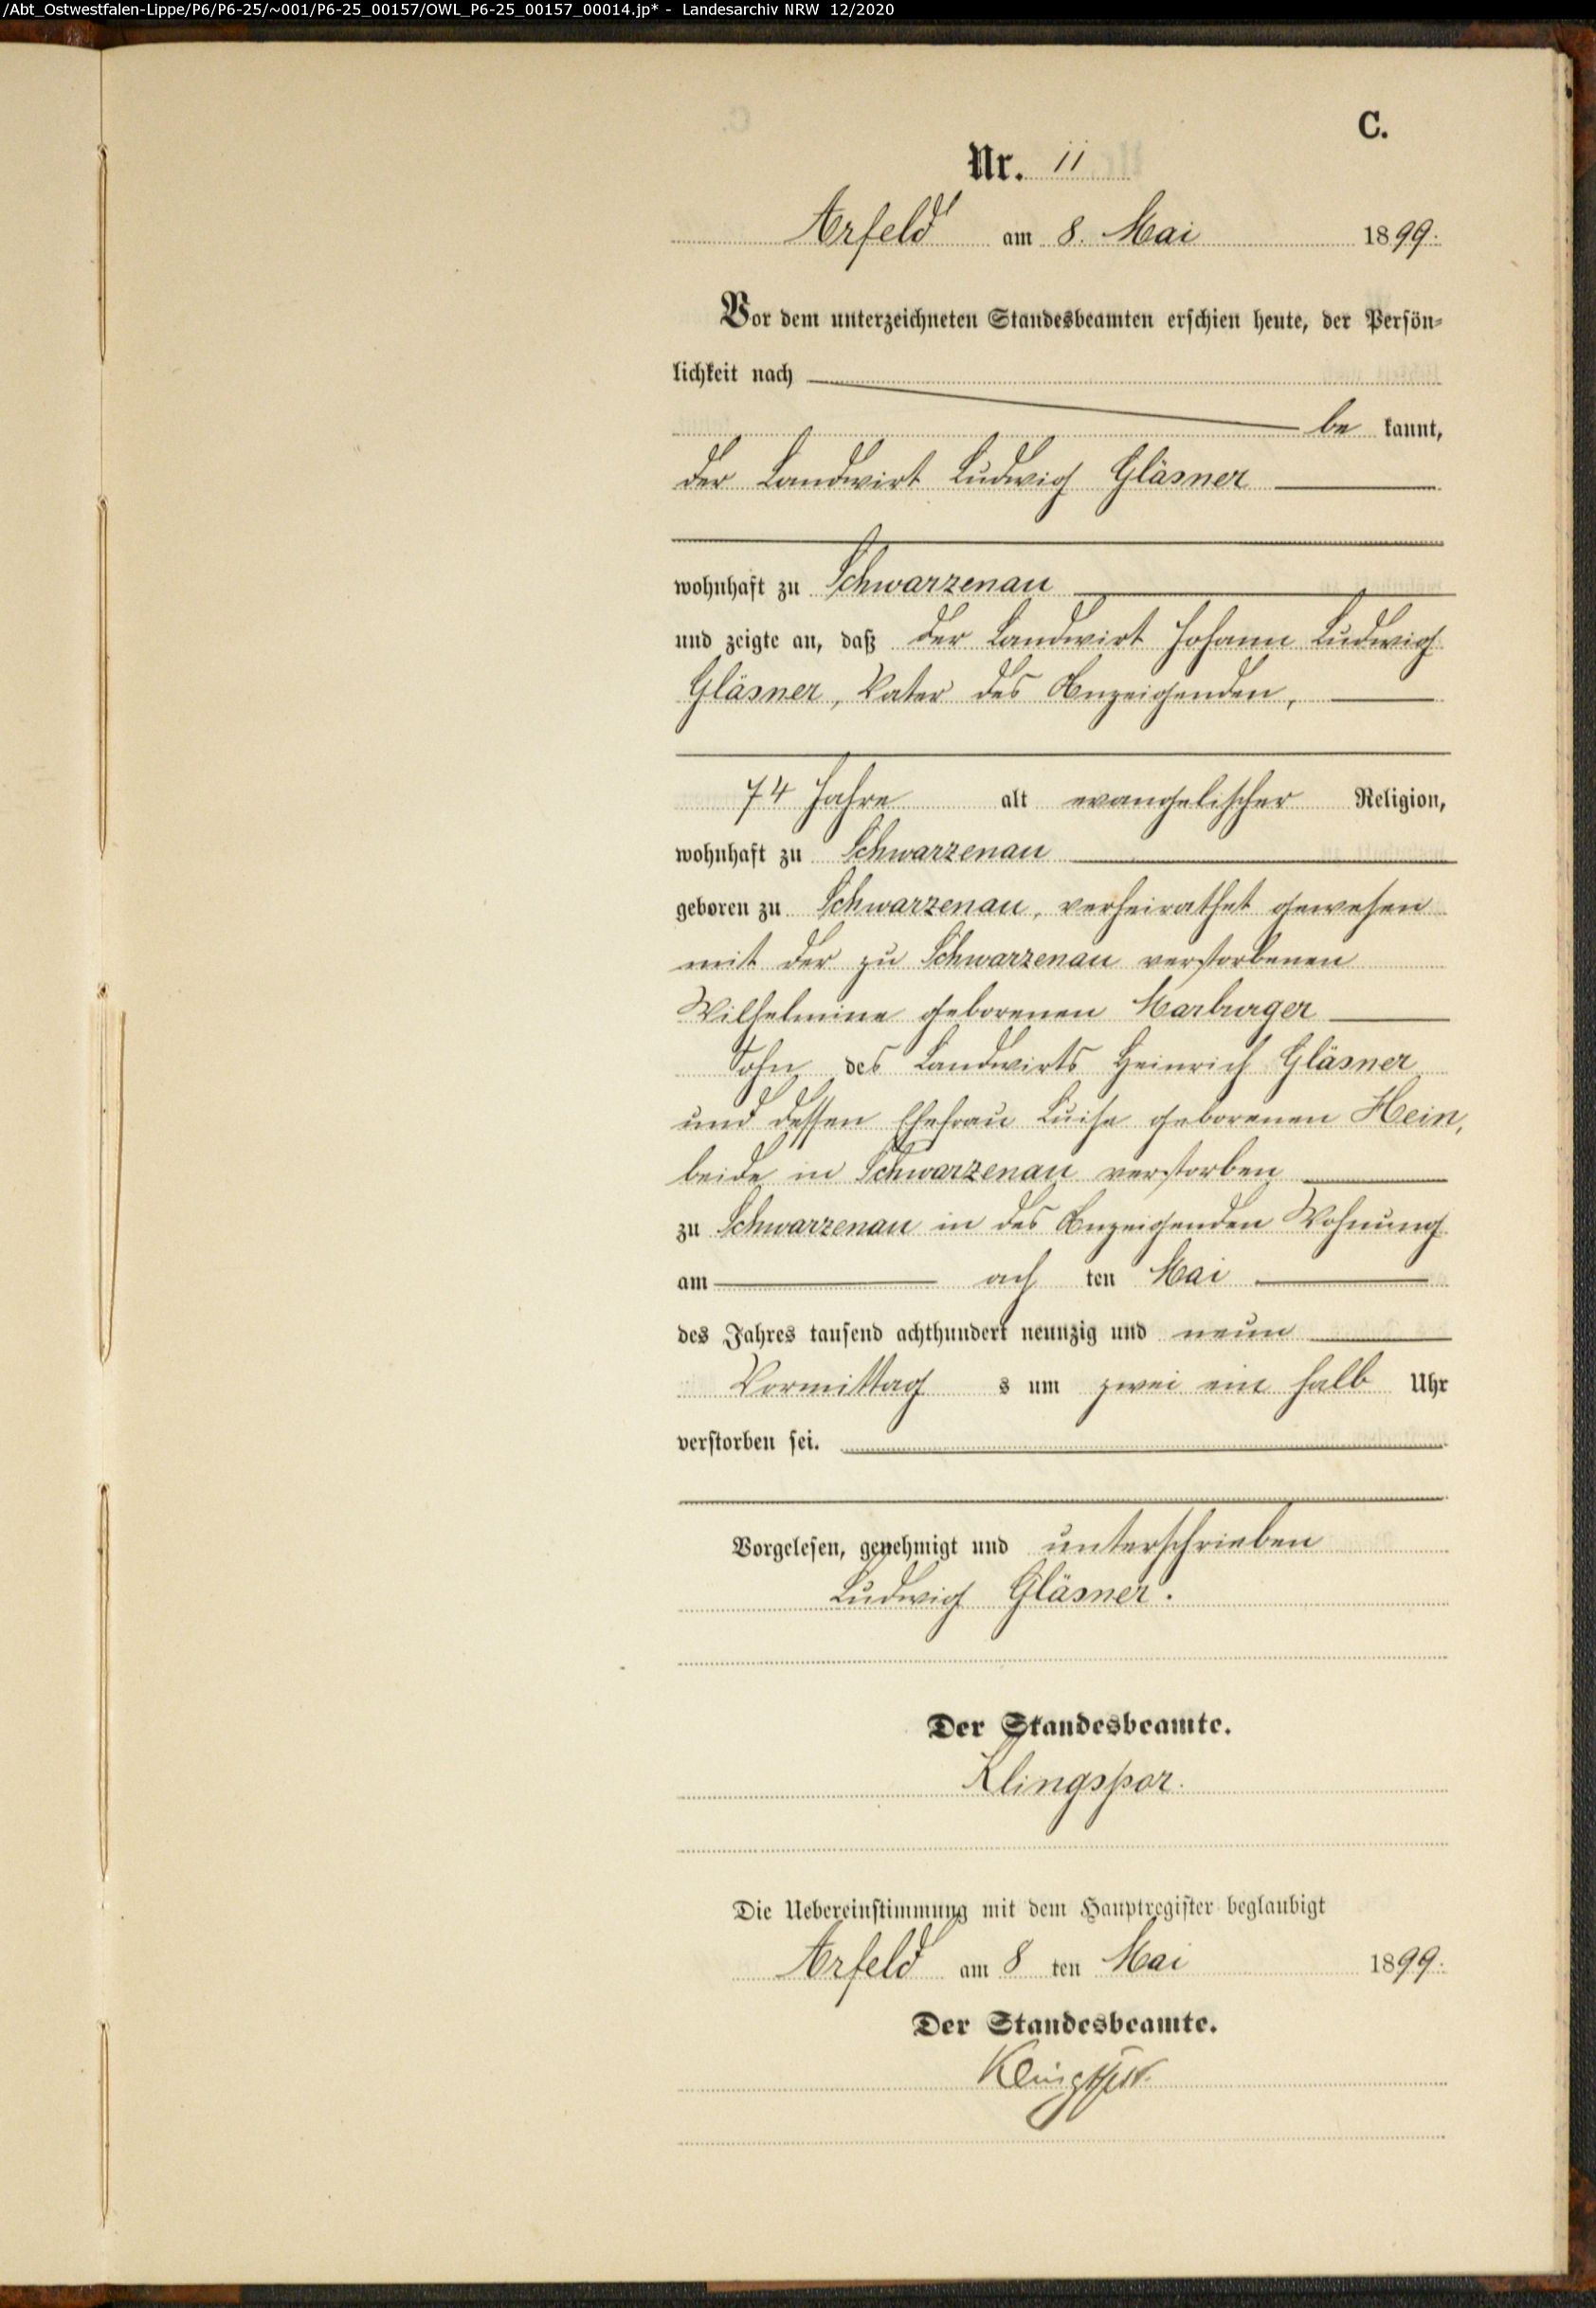 /Abt_Ostwestfalen-Lippe/P6/P6-25/~001/P6-25_00157/OWL_P6-25_00157_00014.jp* - Landesarchiv NRW 12/2020
C.
Nr. 11
Arfeld am 8. Mai 1899.
Vor dem unterzeichneten Standesbeamten erschien heute, der Persön-
lichkeit nach
be kannt,
der Landwirt Ludwig Gläsner
wohnhaft zu Schwarzenau
und zeigte an, daß der Landwirt Johann Ludwig
Gläsner, Vater des Anzeigenden,
74 Jahre alt evangelischer Religion,
wohnhaft zu Schwarzenau
geboren zu Schwarzenau, verheirathet gewesen
mit der zu Schwarzenau verstorbenen
Wilhelmine geborenen Marburger
Sohn des Landwirts Heinrich Gläsner
und dessen Ehefrau Luise geborenen Hein,
beide in Schwarzenau verstorben
zu Schwarzenau in des Anzeigenden Wohnung
am ach ten Mai
des Jahres tausend achthundert neunzig und neun
Vormittag s um zwei ein halb Uhr
verstorben sei.
Vorgelesen, genehmigt und unterschrieben
Ludwig Gläsner.
Der Standesbeamte.
Klingspor.
Die Uebereinstimmung mit dem Hauptregister beglaubigt
Arfeld am 8 ten Mai 1899.
Der Standesbeamte.
Klingspor